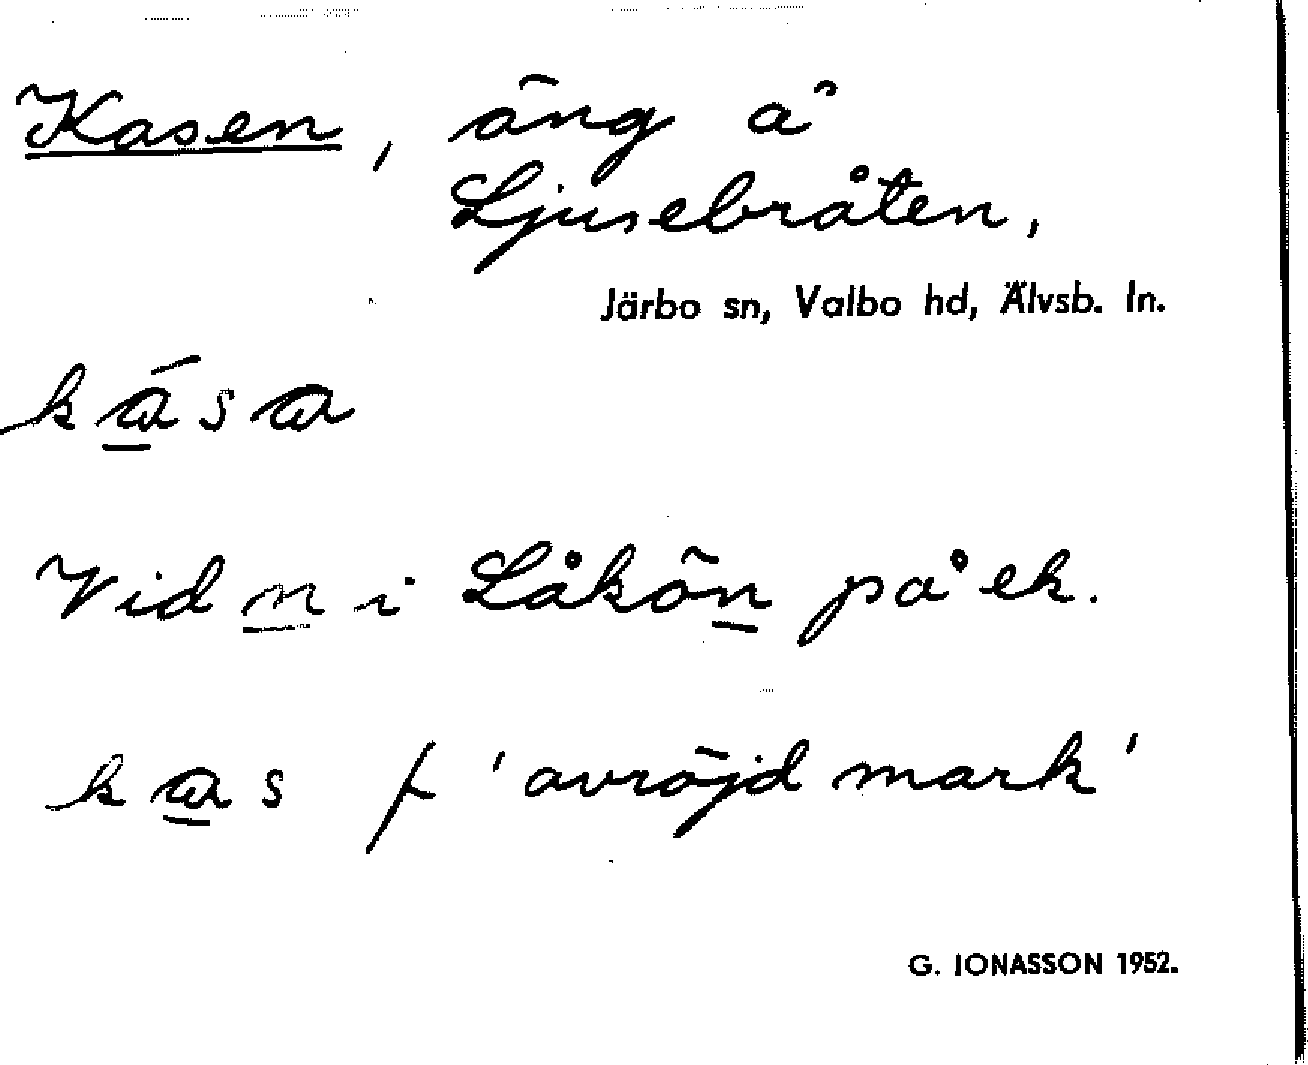 Kasen, äng å
Ljusebråten,
Järbo sn, Valbo hd, Älvsb. ln.
kása
Vid n i Låkön på ek.
kas f 'avröjd mark'
G. IONASSON 1952.